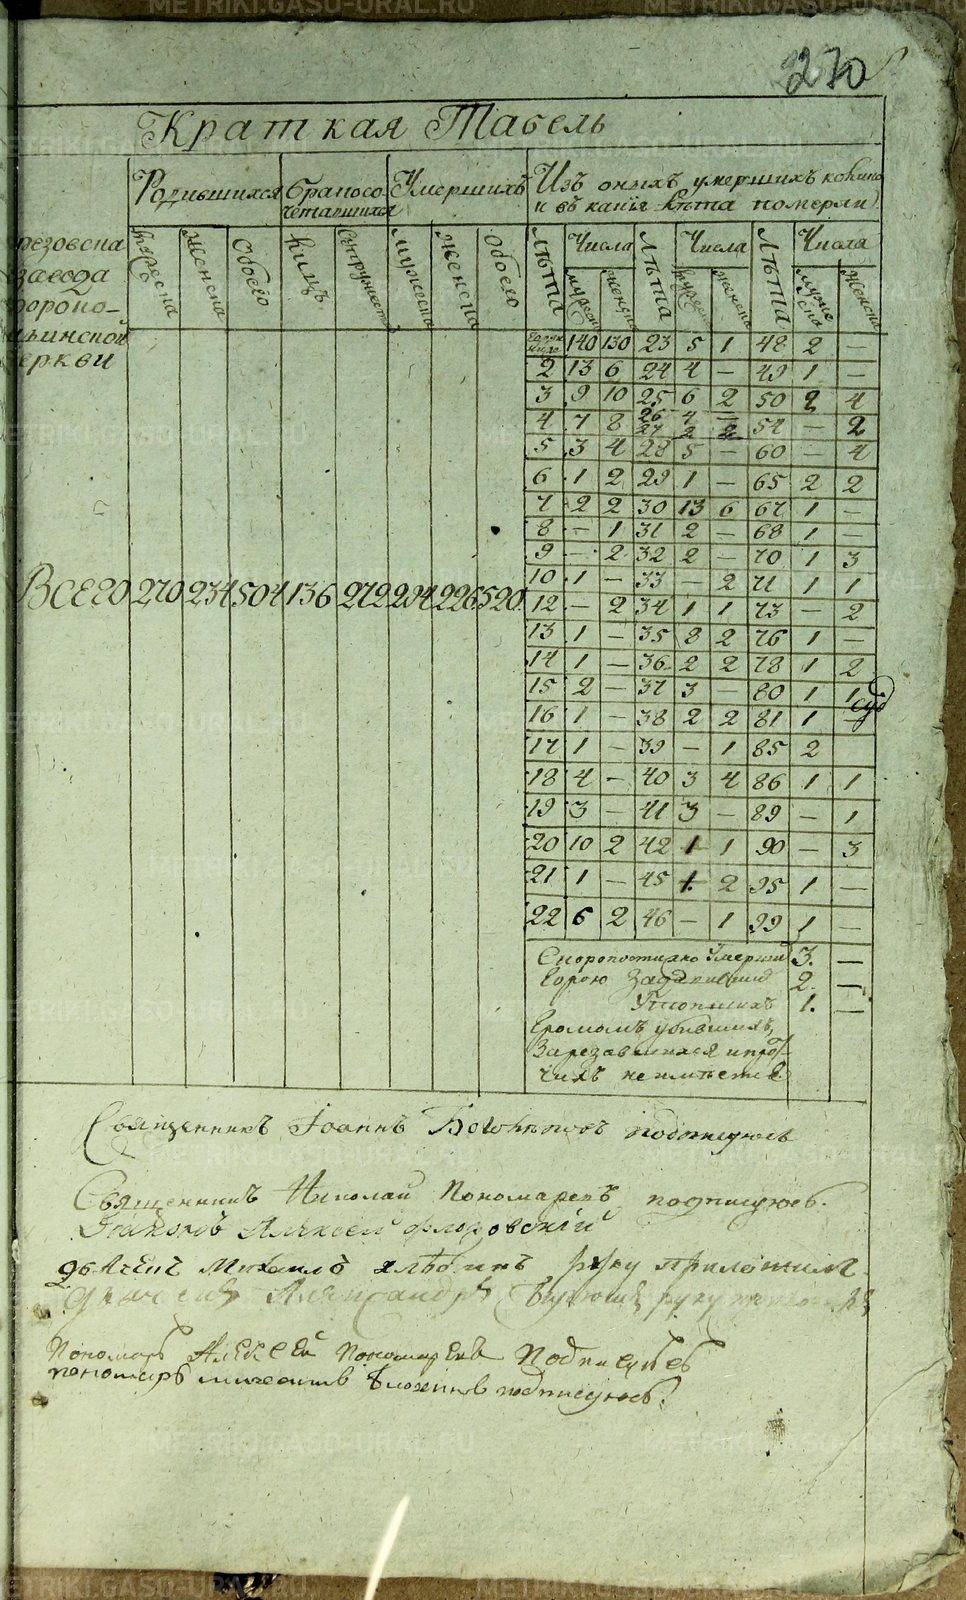 270
Краткая Табель
Родившихся Бракосо Умершихъ Изъ оныхъ умершихъ колико
четавшихся и въ какія лѣта померли
завода
ской
еркви
Мужеска Женска Обоего Лицъ Мужеска Женска Обоего Лѣта Числа Лѣта Числа Лѣта Числа
мужеск женска мужеск женска муже женска
ска
140 130 23 5 1 48 2 —
2 13 6 24 4 — 49 1 —
3 9 10 25 6 2 50 2 4
4 7 8 26 4 — 54 — 2
27 2 2
5 3 4 28 5 — 60 — 4
6 1 2 29 1 — 65 2 2
7 2 2 30 13 6 67 1 —
8 — 1 31 2 — 68 1 —
9 — 2 32 2 — 70 1 3
10 1 — 33 — 2 71 1 1
Всего 270 234 504 136 272 294 226 520
12 — 2 34 1 1 73 — 2
13 1 — 35 8 2 76 1 —
14 1 — 36 2 2 78 1 2
15 2 — 37 3 — 80 1 1
16 1 — 38 2 2 81 1 —
17 1 — 39 — 1 85 2
18 4 — 40 3 4 86 1 1
19 3 — 41 3 — 89 — 1
20 10 2 42 1 1 90 — 3
21 1 — 45 1 2 95 1 —
22 6 2 46 — 1 99 1 —
Скоропостижно Умерши 3. —
Горою 2. —
Утопшихъ 1. —
Громомъ убившихъ,
Зарезавшихся и про
чихъ не имѣется
Священникъ Іоаннъ подписуюсь
Священникъ Николай Пономаревъ подписуюсь.
Алексей Флоровскій
Михаилъ Хлѣбинъ руку приложилъ
Александръ руку
Пономарь Алексей Пономаревъ Подписуюсь
пономарь Блохинъ подписуюсь.
METRIKI.GASO-URAL.RU